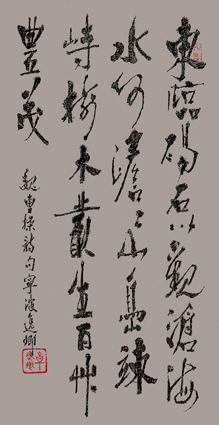 東臨碣石以觀滄海
水何澹〻山島竦
峙樹木叢生百艸
豐茂
魏曹操詩句寧波逸卿